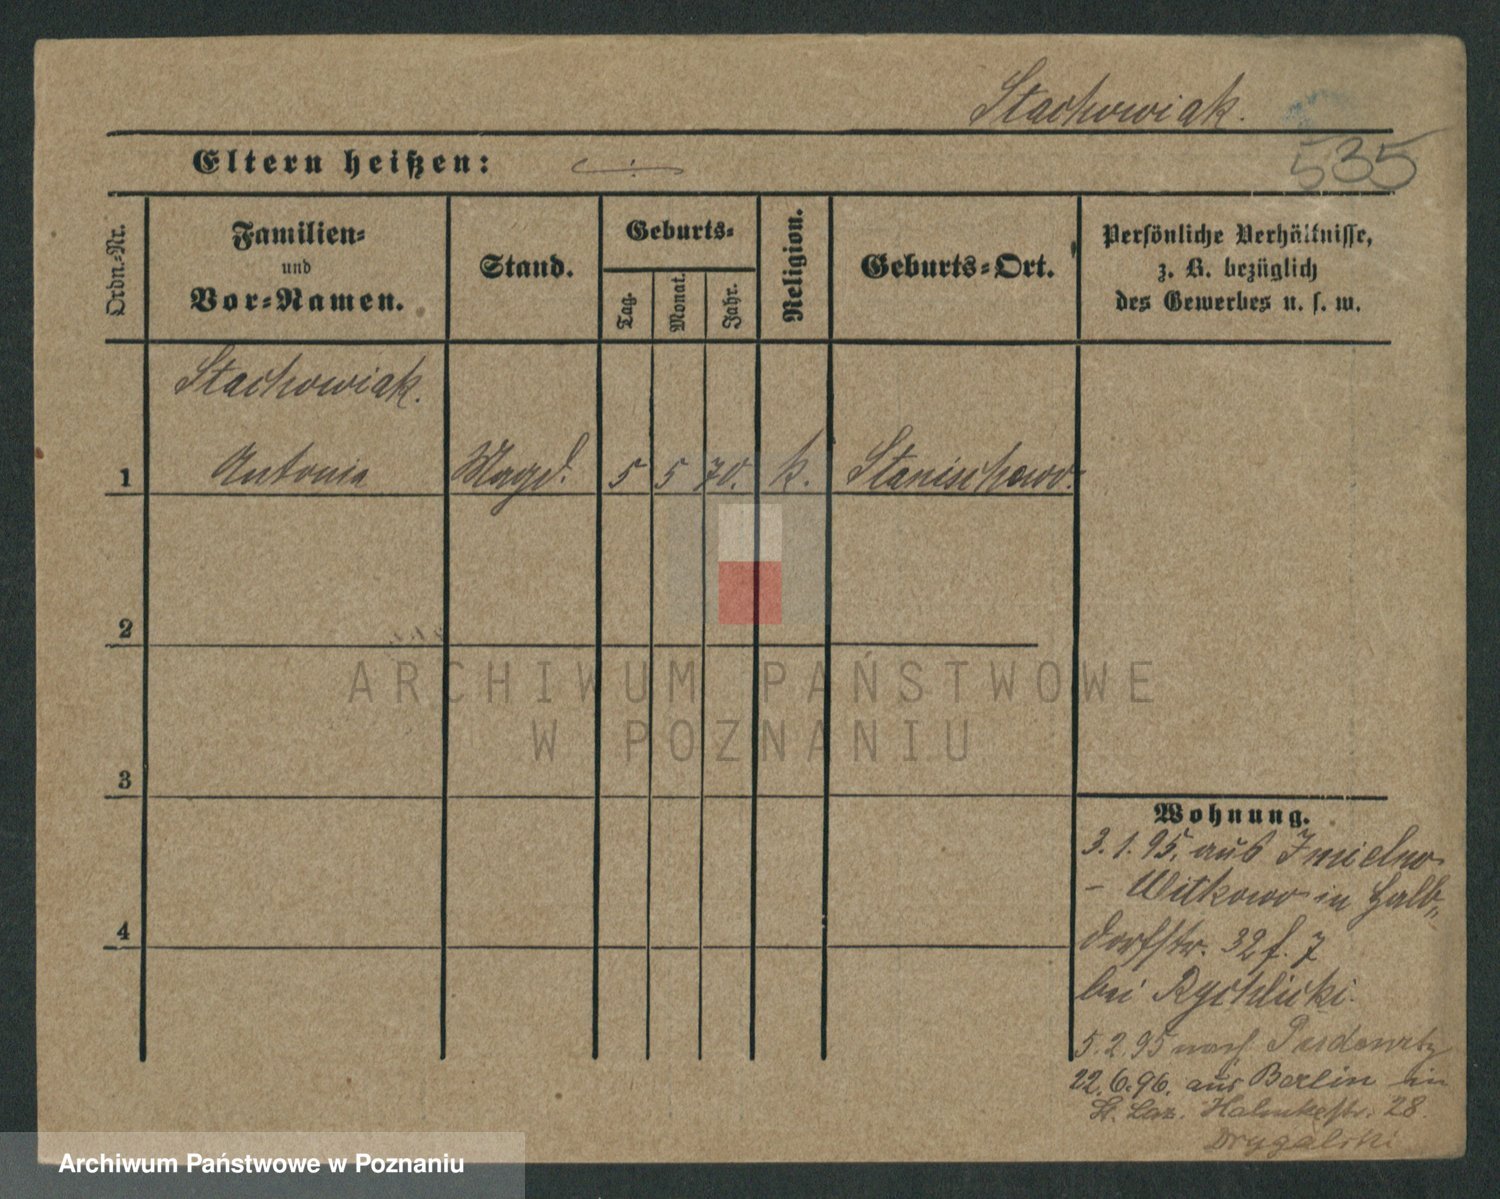 Stachowiak.
535
Eltern heißen: -.-
Ordn.-Nr.
Familien-
und
Vor-Namen.
Stand.
Geburts-
Tag.
Monat.
Jahr.
Religion.
Geburts-Ort.
Persönliche Verhältnisse,
z. B. bezüglich
des Gewerbes u. s. w.
Stachowiak.
1 Antonia Magd. 5 5 70. k. Stanischewo.
2
3
4
Wohnung.
3.1.95. aus Imielno
- Witkowo in Halb-
dorfstr. 32 f. 7
bei Rychlicki.
5.2.95 nach Pudewitz
22.6.96. aus Berlin in
St. Laz. 28.
Drygalski
ARCHIWUM PAŃSTWOWE
W POZNANIU
Archiwum Państwowe w Poznaniu